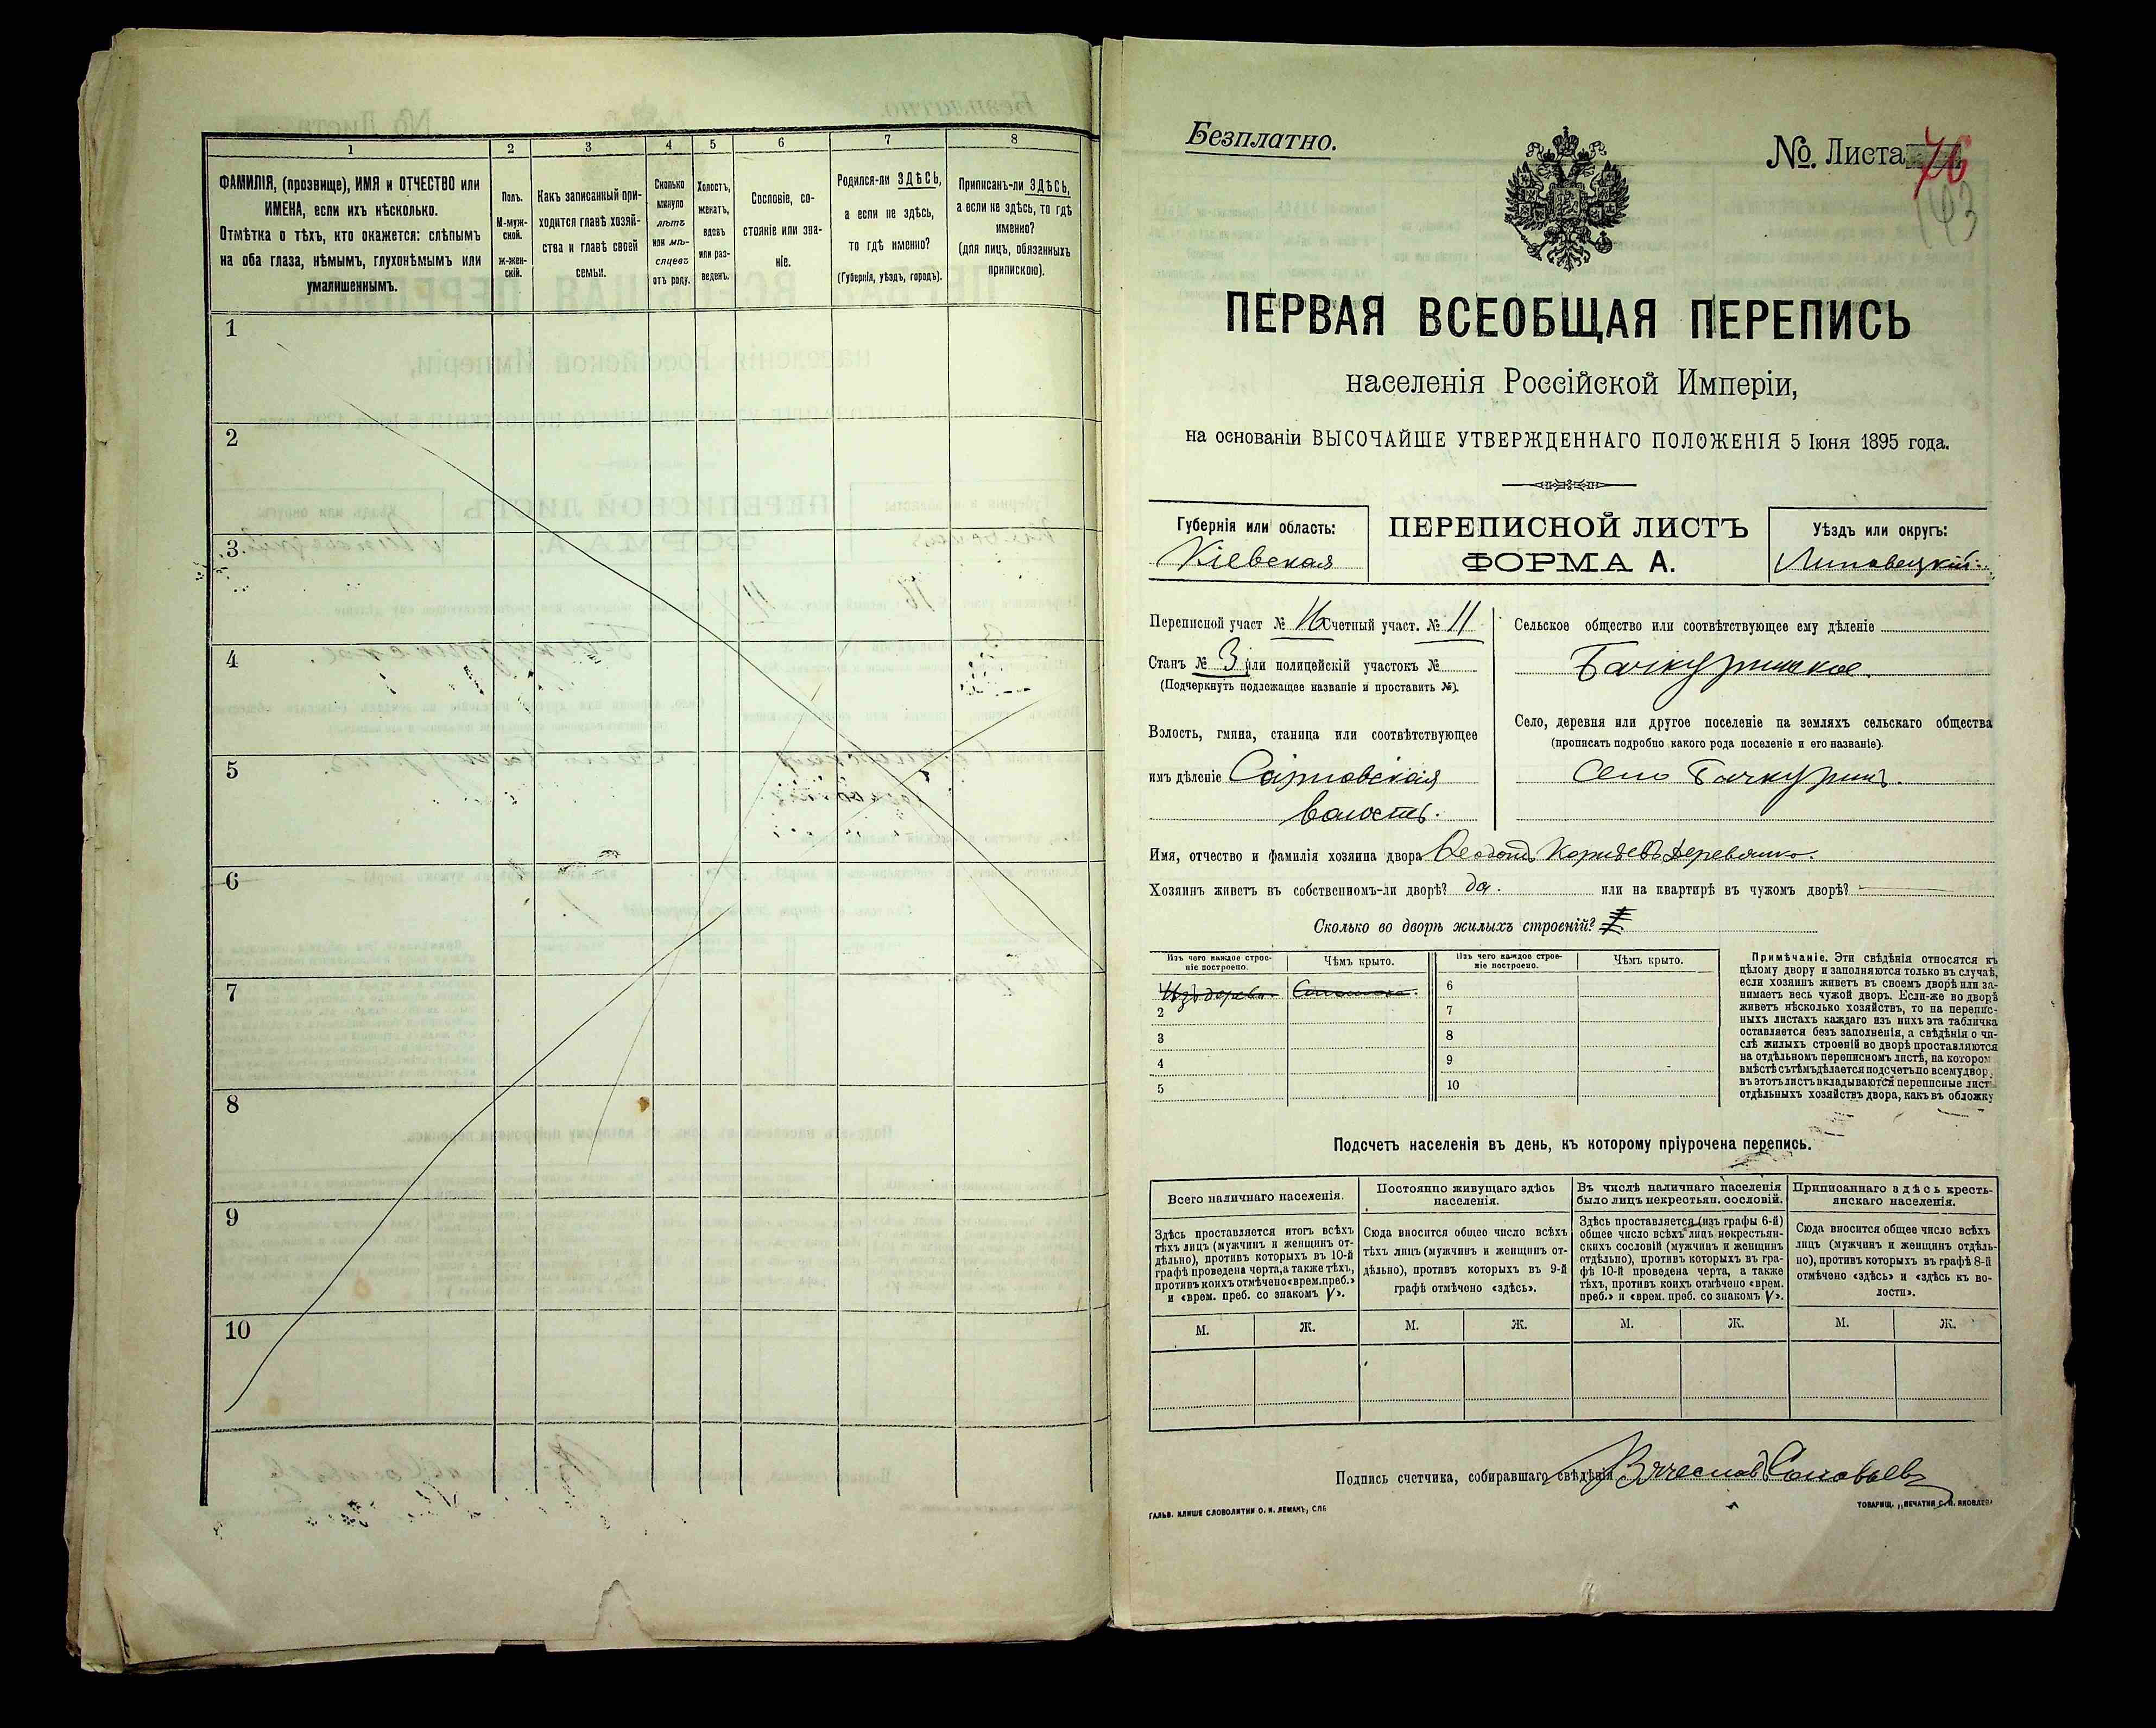 1 2 3 4 5 6 7 8
ФАМИЛІЯ, (прозвище), ИМЯ и ОТЧЕСТВО или
ИМЕНА, если ихъ нѣсколько.
Отмѣтка о тѣхъ, кто окажется: слѣпымъ
на оба глаза, нѣмымъ, глухонѣмымъ или
умалишеннымъ.
Полъ.
М-муж-
ской.
ж-жен-
скій.
Какъ записанный при-
ходится главѣ хозяй-
ства и главѣ своей
семьи.
Сколько
минуло
лѣтъ
или мѣ-
сяцевъ
отъ роду.
Холостъ,
женатъ,
вдовъ
или раз-
веденъ.
Сословіе, со-
стояніе или зва-
ніе.
Родился-ли ЗДѢСЬ,
а если не здѣсь,
то гдѣ именно?
(Губернія, уѣздъ, городъ).
Приписанъ-ли ЗДѢСЬ,
а если не здѣсь, то гдѣ
именно?
(для лицъ, обязанныхъ
припискою).
1
2
3
4
5
6
7
8
9
10
Безплатно.
№ Листа 76
143
ПЕРВАЯ ВСЕОБЩАЯ ПЕРЕПИСЬ
населенія Россійской Имперіи,
на основаніи ВЫСОЧАЙШЕ УТВЕРЖДЕННАГО ПОЛОЖЕНІЯ 5 Іюня 1895 года.
Губернія или область:
Кіевская
ПЕРЕПИСНОЙ ЛИСТЪ
ФОРМА А.
Уѣздъ или округъ:
Липовецкій
Переписной участ № 16 Счетный участ. № 11
Станъ № 3 или полицейскій участокъ №
(Подчеркнуть подлежащее названіе и проставить №).
Волость, гмина, станица или соотвѣтствующее
имъ дѣленіе
волость.
Сельское общество или соотвѣтствующее ему дѣленіе
Село, деревня или другое поселеніе на земляхъ сельскаго общества
(прописать подробно какого рода поселеніе и его названіе).
Село
Имя, отчество и фамилія хозяина двора
Хозяинъ живетъ въ собственномъ-ли дворѣ? да. или на квартирѣ въ чужомъ дворѣ? —
Сколько во дворѣ жилыхъ строеній?
Изъ чего каждое строе-
ніе построено.
Чѣмъ крыто.
Изъ чего каждое строе-
ніе построено.
Чѣмъ крыто.
Изъ дерева. Соломою.
2
3
4
5
6
7
8
9
10
Примѣчаніе. Эти свѣдѣнія относятся къ
цѣлому двору и заполняются только въ случаѣ,
если хозяинъ живетъ въ своемъ дворѣ или за-
нимаетъ весь чужой дворъ. Если-же во дворѣ
живетъ нѣсколько хозяйствъ, то на перепис-
ныхъ листахъ каждаго изъ нихъ эта табличка
оставляется безъ заполненія, а свѣдѣнія о чи-
слѣ жилыхъ строеній во дворѣ проставляются
на отдѣльномъ переписномъ листѣ, на котором
вмѣстѣ съ тѣмъ дѣлается подсчетъ по всему двор
въ этотъ листъ вкладываются переписные лист
отдѣльныхъ хозяйствъ двора, какъ въ обложку
Подсчетъ населенія въ день, къ которому пріурочена перепись.
Всего наличнаго населенія.
Постоянно живущаго здѣсь
населенія.
Въ числѣ наличнаго населенія
было лицъ некрестьян. сословій.
Приписаннаго здѣсь кресть-
янскаго населенія.
Здѣсь проставляется итогъ всѣхъ
тѣхъ лицъ (мужчинъ и женщинъ от-
дѣльно), противъ которыхъ въ 10-й
графѣ проведена черта, а также тѣхъ,
противъ коихъ отмѣчено «врем. преб.»
и «врем. преб. со знакомъ V».
Сюда вносится общее число всѣхъ
тѣхъ лицъ (мужчинъ и женщинъ от-
дѣльно), противъ которыхъ въ 9-й
графѣ отмѣчено «здѣсь».
Здѣсь проставляется (изъ графы 6-й)
общее число всѣхъ лицъ некрестьян-
скихъ сословій (мужчинъ и женщинъ
отдѣльно), противъ которыхъ въ гра-
фѣ 10-й проведена черта, а также
тѣхъ, противъ коихъ отмѣчено «врем.
преб.» и «врем. преб. со знакомъ V».
Сюда вносится общее число всѣхъ
лицъ (мужчинъ и женщинъ отдѣль-
но), противъ которыхъ въ графѣ 8-й
отмѣчено «здѣсь» и «здѣсь къ во-
лости».
М. Ж. М. Ж. М. Ж. М. Ж.
Подпись счетчика, собиравшаго свѣдѣнія Вячеслав Соловьевъ
ГАЛЬВ. КЛИШЕ СЛОВОЛИТНИ О. И. ЛЕМАНЪ, СПБ
ТОВАРИЩ. „ПЕЧАТНЯ С. П. ЯКОВЛЕВА